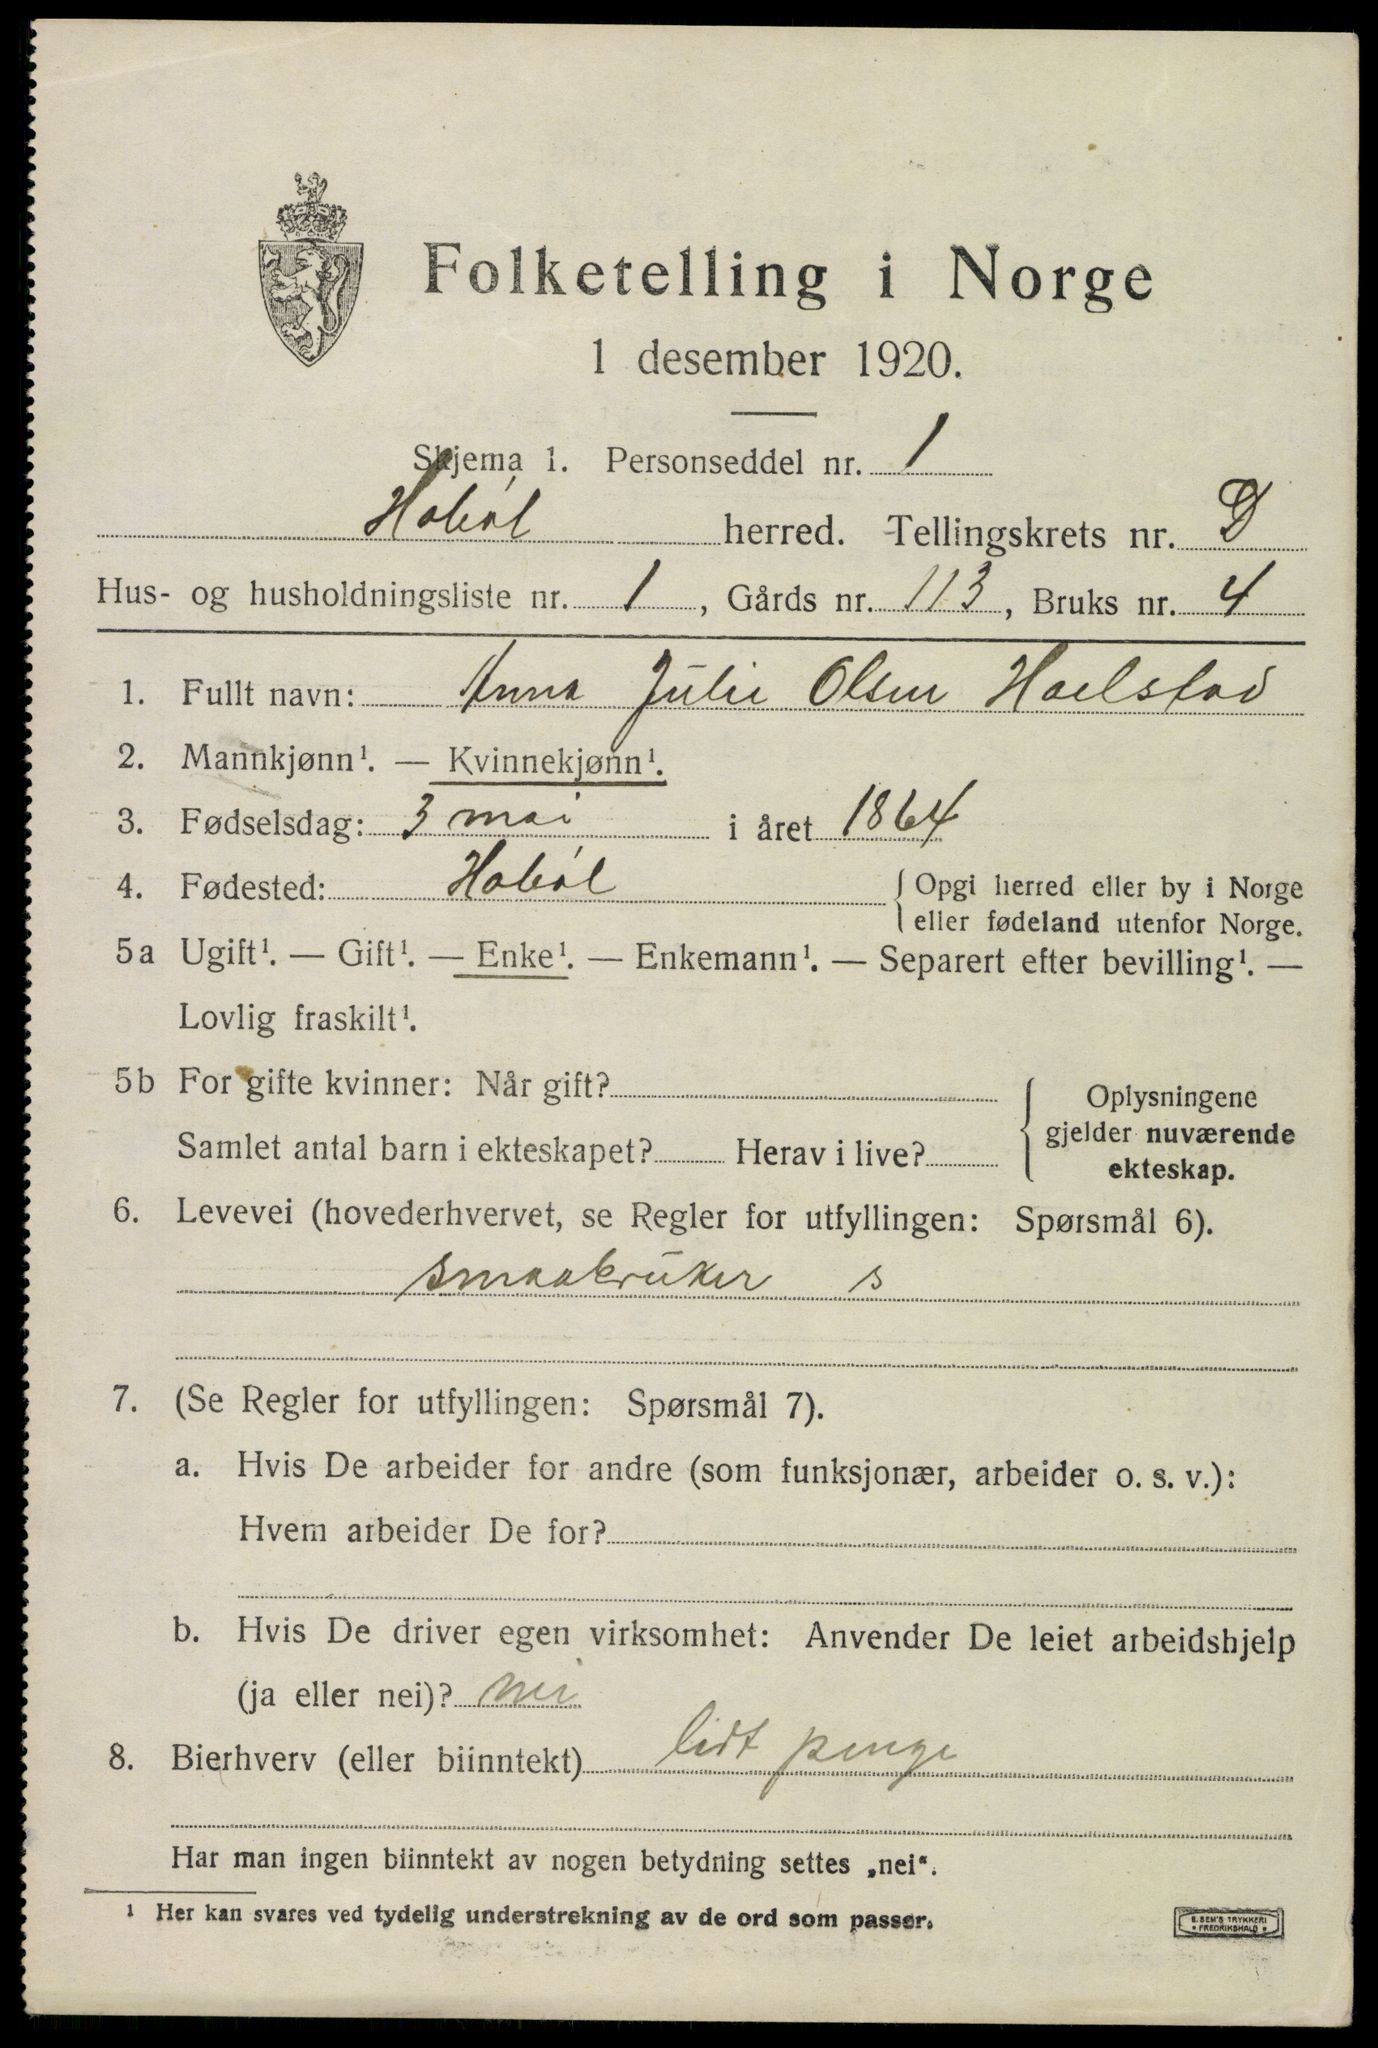 Folketelling i Norge
1 desember 1920.
Skjema 1. Personseddel nr. 1
Hobøl herred. Tellingskrets nr. D
Hus- og husholdningsliste nr. 1, Gårds nr. 113, Bruks nr. 4
1. Fullt navn: Anna Julie Olsen Haelstad
2. Mannkjønn¹. — Kvinnekjønn¹.
3. Fødselsdag: 3 mai i året 1864
4. Fødested: Hobøl { Opgi herred eller by i Norge
eller fødeland utenfor Norge.
5a Ugift¹. — Gift¹. — Enke¹. — Enkemann¹. — Separert efter bevilling¹. —
Lovlig fraskilt¹.
5b For gifte kvinner: Når gift? { Oplysningene
gjelder nuværende
Samlet antal barn i ekteskapet? Herav i live?
ekteskap.
6. Levevei (hovederhvervet, se Regler for utfyllingen: Spørsmål 6).
smaabruker s
7. (Se Regler for utfyllingen: Spørsmål 7).
a. Hvis De arbeider for andre (som funksjonær, arbeider o. s. v.):
Hvem arbeider De for?
b. Hvis De driver egen virksomhet: Anvender De leiet arbeidshjelp
(ja eller nei)? nei
8. Bierhverv (eller biinntekt) lidt penge
Har man ingen biinntekt av nogen betydning settes „nei“.
¹ Her kan svares ved tydelig understrekning av de ord som passer.
E. SEM'S TRYKKERI
• FREDRIKSHALD •